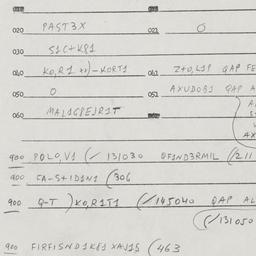 020 PAST3X 021 O
030 S1C+K81
040 KO,R1 **)-KORT1 041 Z+O,L1P QAP FE
050 O 051 AXUDO81 QAP A
060 MAL1CPEJR1T
900 POLO,V1 (/ 131030 QF1ND3RMIL (/211
900 FA-S+1D1N1 (306
900 Q-T )KO,R1T1 (/145040 QAP AL
(/131050
900 FIRFISND1K81 XAJ1S (463